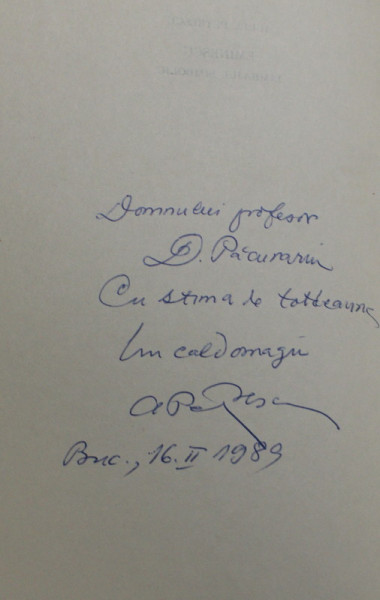 Domnului profesor
D. Păcurariu
Cu stima de totdeauna
Un cald omagiu
Buc., 16.II 1989